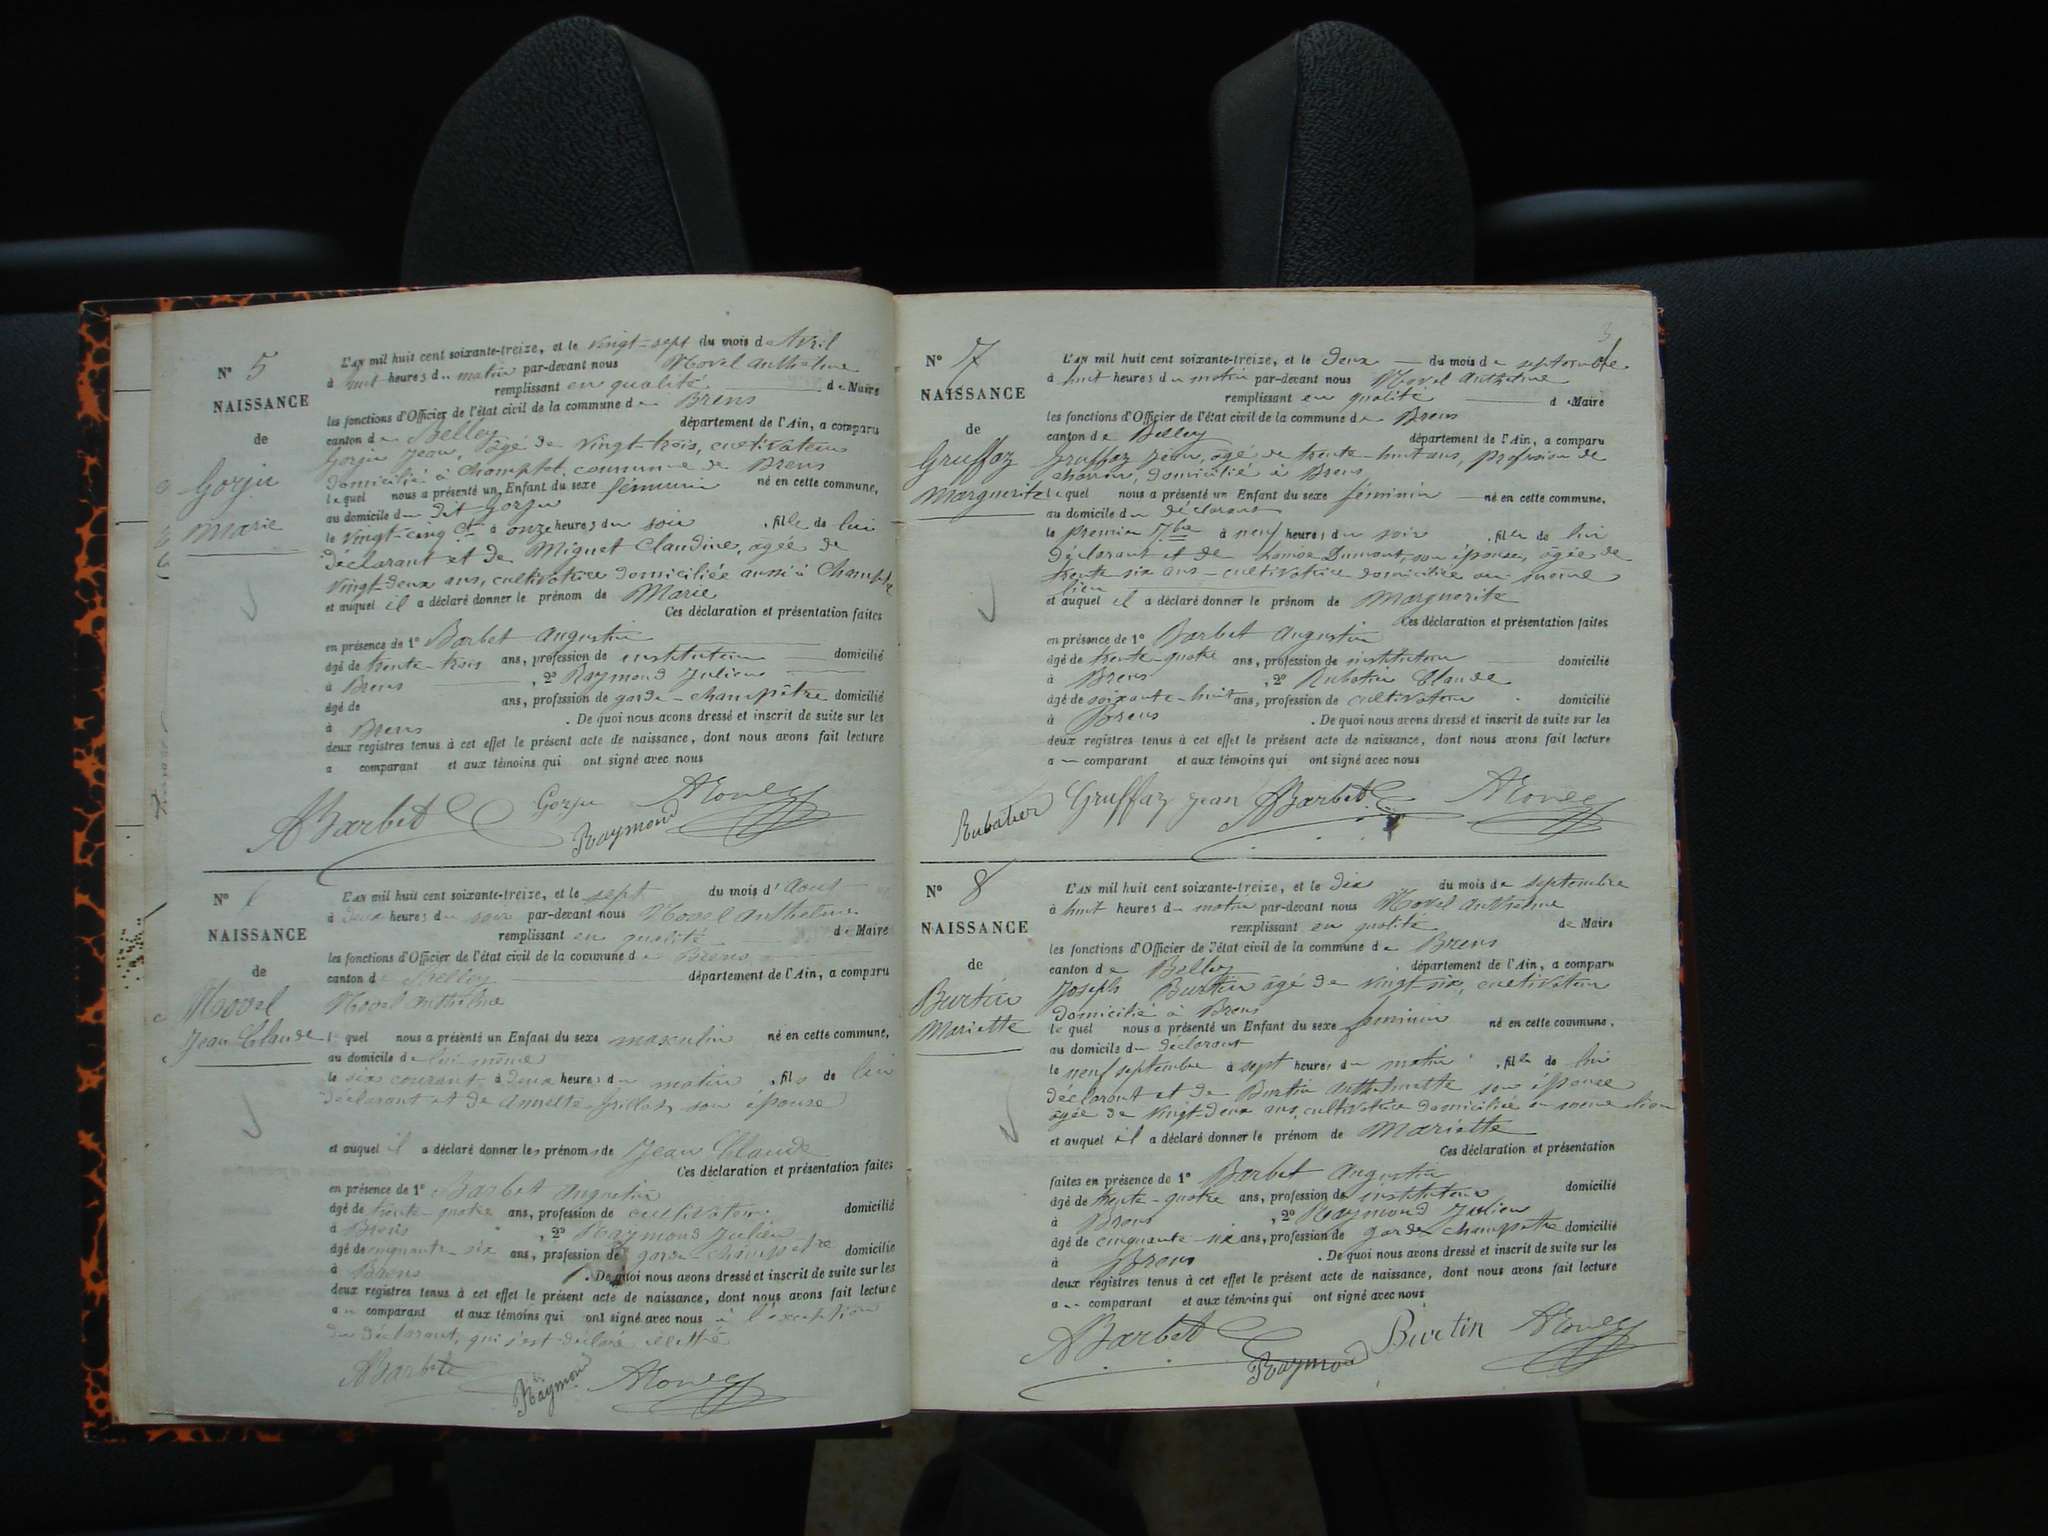 N° 5
NAISSANCE
de
Gorju
Marie
L'AN mil huit cent soixante-treize, et le vingt-sept du mois d'Avril
à huit heures du matin par-devant nous Hovel Anthelme
remplissant en qualité de Maire
les fonctions d'Officier de l'état civil de la commune de Brens
canton de Belley département de l'Ain, a comparu
Gorju Jean, âgé de vingt-trois, cultivateur
domicilié à Champtel, commune de Brens
lequel nous a présenté un Enfant du sexe féminin né en cette commune,
au domicile du dit Gorju
le vingt-cinq à onze heures du soir, fille de lui
déclarant et de Miguet Claudine, agée de
vingt-deux ans, cultivatrice domiciliée aussi à
et auquel il a déclaré donner le prénom de Marie
Ces déclaration et présentation faites
en présence de 1° Barbet Augustin
âgé de trente-trois ans, profession de instituteur domicilié
à Brens, 2° Raymond Julien
âgé de ans, profession de garde-champêtre domicilié
à Brens. De quoi nous avons dressé et inscrit de suite sur les
deux registres tenus à cet effet le présent acte de naissance, dont nous avons fait lecture
a comparant et aux témoins qui ont signé avec nous
ABarbet Gorju Raymond AHovel
N° 6
NAISSANCE
de
Hovel
Jean Claude
L'AN mil huit cent soixante-treize, et le sept du mois d'Aout
à deux heures du soir par-devant nous Hovel Anthelme
remplissant en qualité de Maire
les fonctions d'Officier de l'état civil de la commune de Brens
canton de Belley département de l'Ain, a comparu
Hovel Anthelme
lequel nous a présenté un Enfant du sexe masculin né en cette commune,
au domicile de lui même
le six courant à deux heures du matin, fils de lui
déclarant et de Annette son épouse
et auquel il a déclaré donner les prénoms de Jean Claude
Ces déclaration et présentation faites
en présence de 1° Barbet Augustin
âgé de trente-quatre ans, profession de cultivateur domicilié
à Brens, 2° Raymond Julien
âgé de cinquante six ans, profession de garde champetre domicilié
à Brens. De quoi nous avons dressé et inscrit de suite sur les
deux registres tenus à cet effet le présent acte de naissance, dont nous avons fait lecture
au comparant et aux témoins qui ont signé avec nous à l'exception
du déclarant, qui s'est déclaré illettré
ABarbet Raymond AHovel
3
N° 7
NAISSANCE
de
Gruffaz
Marguerite
L'AN mil huit cent soixante-treize, et le deux du mois de septembre
à huit heures du matin par-devant nous Hovel Anthelme
remplissant en qualité de Maire
les fonctions d'Officier de l'état civil de la commune de Brens
canton de Belley département de l'Ain, a comparu
Gruffaz Jean, âgé de trente-huit ans, profession de
charron, domicilié à Brens
lequel nous a présenté un Enfant du sexe féminin né en cette commune.
au domicile du déclarant
le premier 7bre à neuf heures du soir, fille de lui
déclarant et de Dumont, son épouse, âgée de
trente-six ans - cultivatrice domiciliée au même
lieu
et auquel il a déclaré donner le prénom de Marguerite
Ces déclaration et présentation faites
en présence de 1° Barbet Augustin
âgé de trente-quatre ans, profession de instituteur domicilié
à Brens, 2° Rubatier Claude
âgé de soixante-huit ans, profession de cultivateur domicilié
à Brens. De quoi nous avons dressé et inscrit de suite sur les
deux registres tenus à cet effet le présent acte de naissance, dont nous avons fait lecture
au comparant et aux témoins qui ont signé avec nous
Rubatier Gruffaz Jean ABarbet AHovel
N° 8
NAISSANCE
de
Burtin
Mariette
L'AN mil huit cent soixante-treize, et le dix du mois de septembre
à huit heures du matin par-devant nous Hovel Anthelme
remplissant en qualité de Maire
les fonctions d'Officier de l'état civil de la commune de Brens
canton de Belley département de l'Ain, a comparu
Joseph Burtin âgé de vingt-six, cultivateur
domicilié à Brens
lequel nous a présenté un Enfant du sexe feminin né en cette commune.
au domicile du déclarant
le neuf septembre à sept heures du matin, fille de lui
déclarant et de Burtin son épouse
âgée de vingt-deux ans, cultivatrice domiciliée au même lieu
et auquel il a déclaré donner le prénom de Mariette
Ces déclaration et présentation
faites en présence de 1° Barbet Augustin
âgé de trente-quatre ans, profession de instituteur domicilié
à Brens, 2° Raymond Julien
âgé de cinquante-six ans, profession de garde champetre domicilié
à Brens. De quoi nous avons dressé et inscrit de suite sur les
deux registres tenus à cet effet le présent acte de naissance, dont nous avons fait lecture
au comparant et aux témoins qui ont signé avec nous
ABarbet Raymond Burtin AHovel